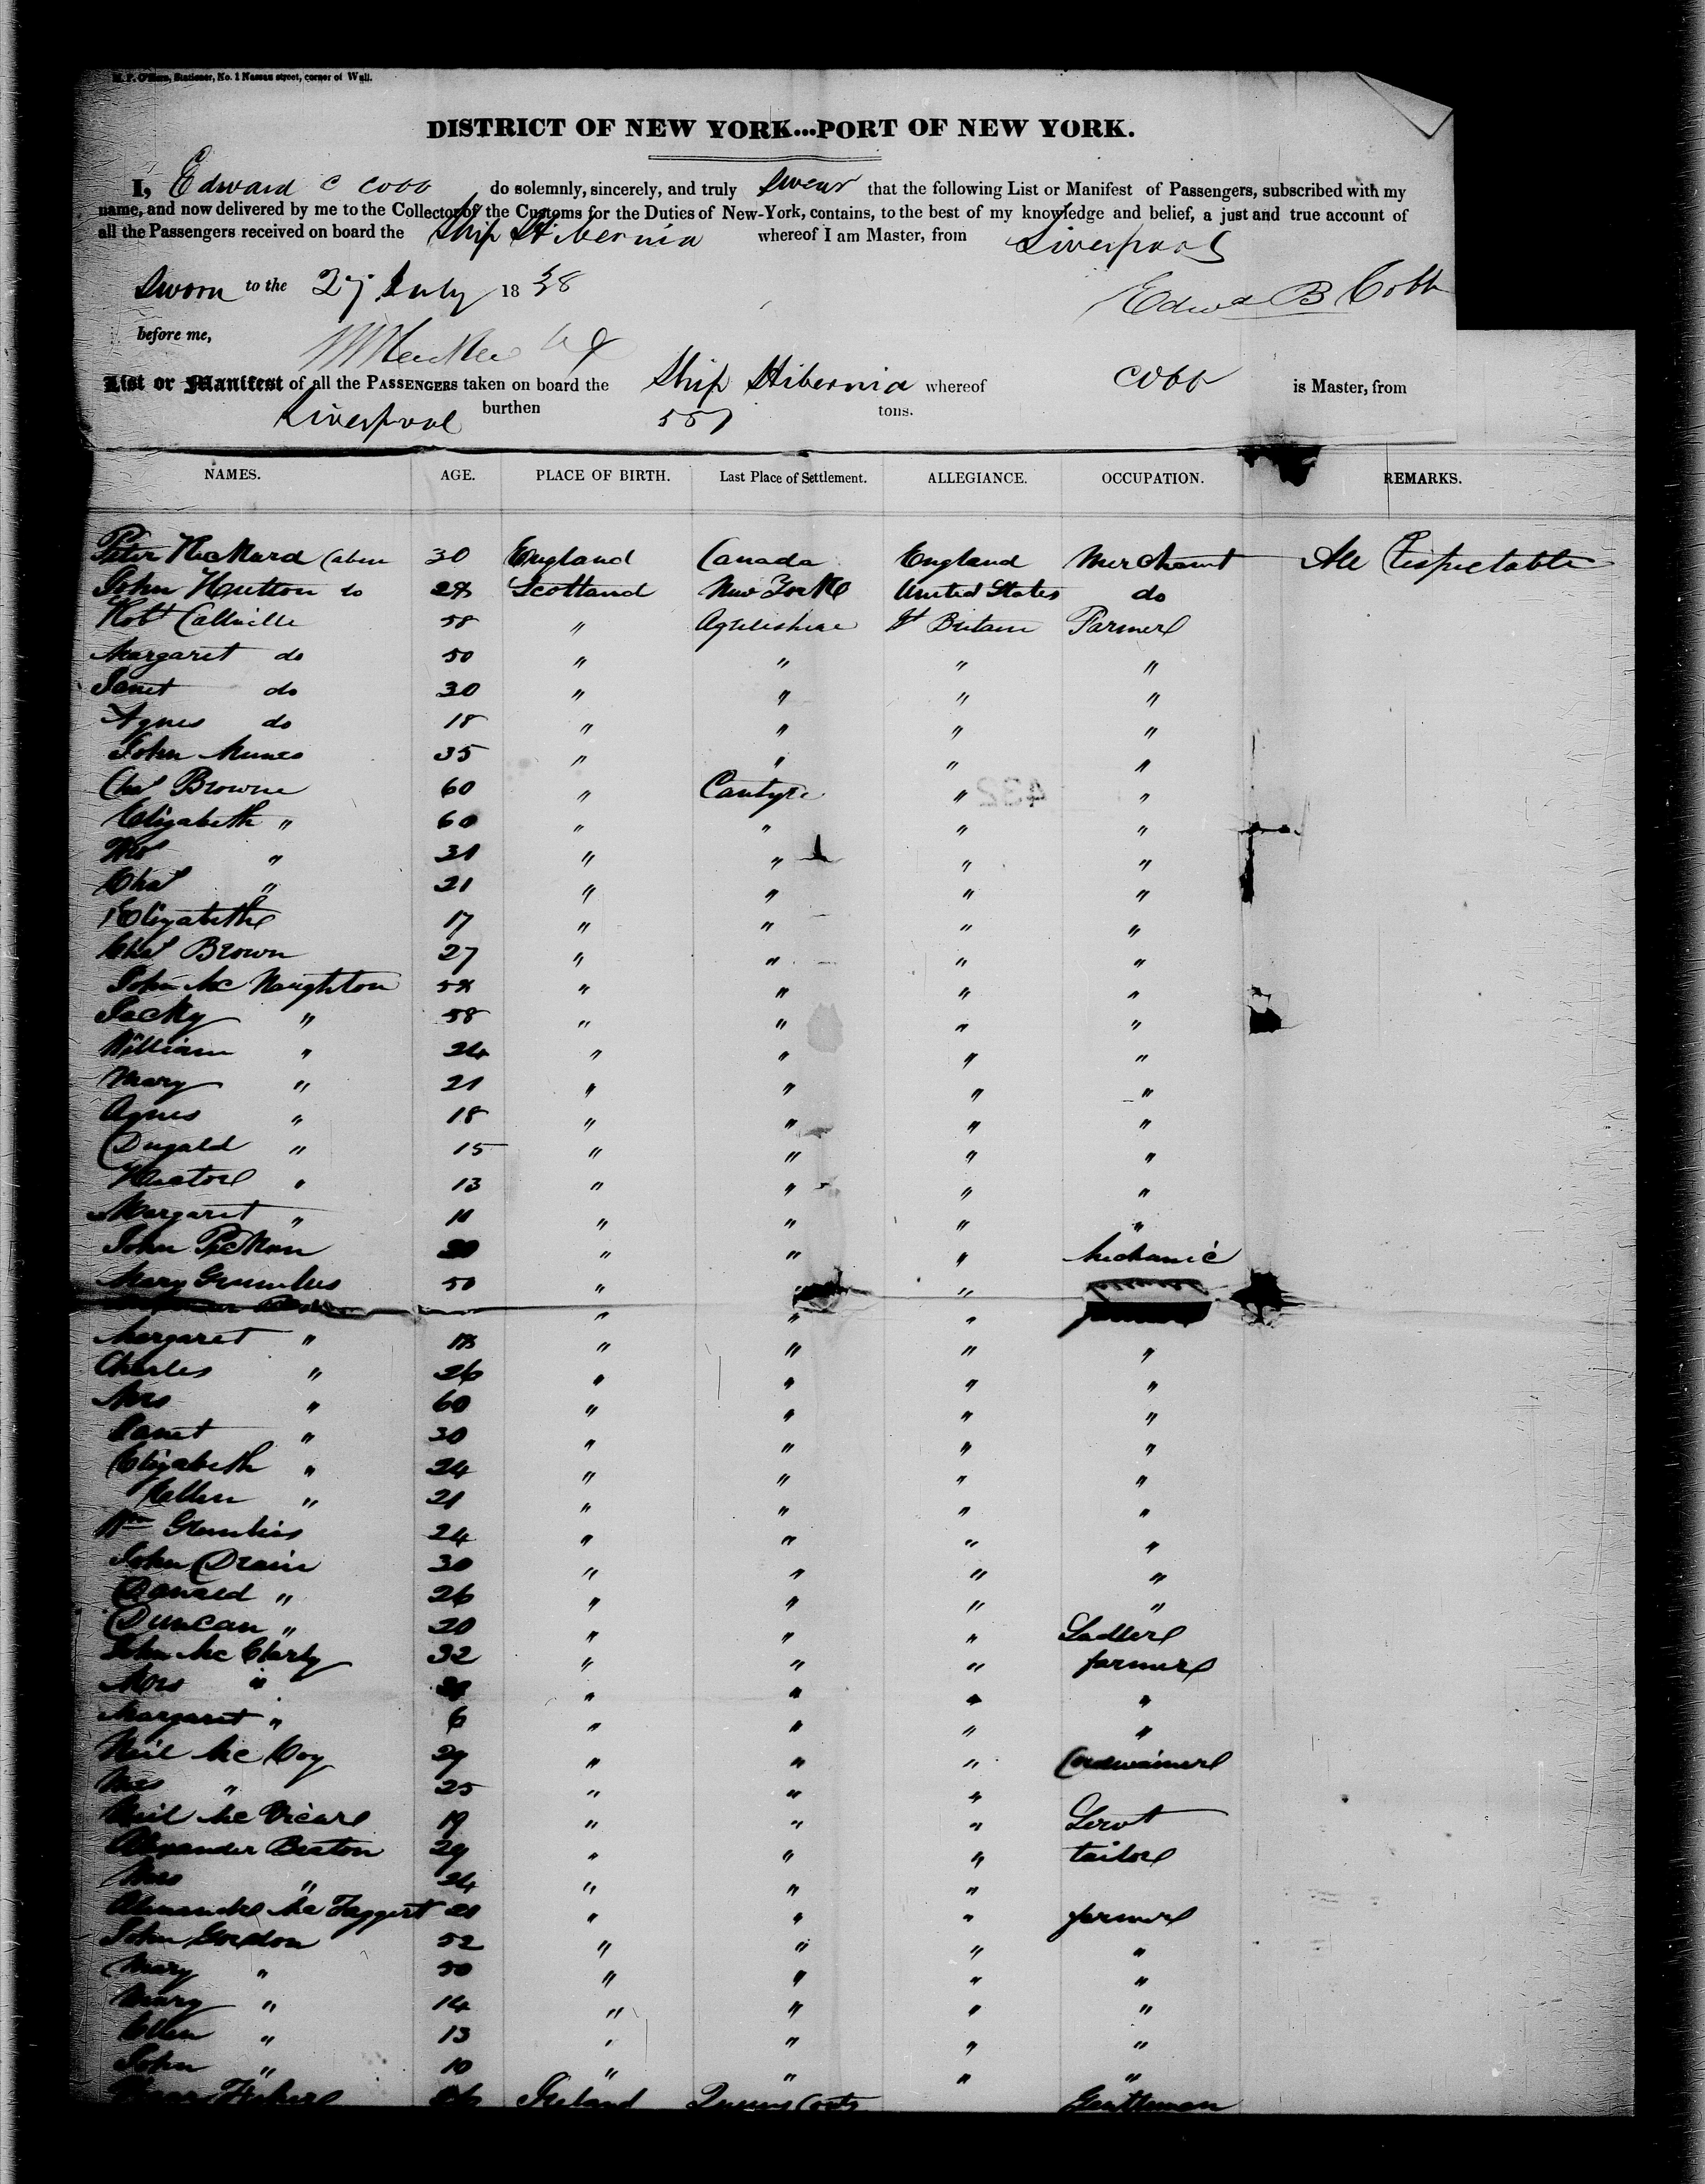 Stationer, No. 1 Nassau street, corner of Wall.
DISTRICT OF NEW YORK...PORT OF NEW YORK.
I, Edward C Cobb do solemnly, sincerely, and truly swear that the following List or Manifest of Passengers, subscribed with my
name, and now delivered by me to the Collector of the Customs for the Duties of New-York, contains, to the best of my knowledge and belief, a just and true account of
all the Passengers received on board the Ship Hibernia whereof I am Master, from Liverpool
Sworn to the 27 July 1838
Edwd B Cobb
before me,
List or Manifest of all the PASSENGERS taken on board the Ship Hibernia whereof Cobb is Master, from
Liverpool burthen 551 tons.
NAMES. AGE. PLACE OF BIRTH. Last Place of Settlement. ALLEGIANCE. OCCUPATION. REMARKS.
Peter 30 England Canada England Merchant All Respectable
John Hutton do 28 Scotland New York United States do
Robt Callville 58 " Argyleshire Gt Britain Farmer
Margaret do 50 " " " "
Janet do 30 " " " "
Agnes do 18 " " " "
John 35 " " " "
Chas Browne 60 " Cantyre " "
Elizabeth " 60 " " " "
" 31 " " " "
Chas " 21 " " " "
Elizabeth 17 " " " "
Chas Brown 27 " " " "
John Mc Naughton 58 " " " "
Jacky " 58 " " " "
William " 24 " " " "
Mary " 21 " " " "
Agnes " 18 " " " "
Dugald " 15 " " " "
" 13 " " " "
Margaret " 11 " " " "
John 20 " " " Mechanic
Mary 50 " " "
" " "
Margaret " 18 " " " "
Charles " 26 " " " "
Mrs " 60 " " " "
Janet " 30 " " " "
Elizabeth " 24 " " " "
Hellen " 21 " " " "
Wm 24 " " " "
John Drain 30 " " " "
Donald " 26 " " " "
Duncan " 20 " " " Sadler
John Mc Clarty 32 " " " farmer
Mrs " " " " "
Margaret " 6 " " " "
Neil Mc Coy 29 " " " Cordwainer
Mrs " 25 " " "
Neil Mc Vicar 19 " " " Servt
Alexander Beaton 29 " " " tailor
Mrs " 24 " " "
Alexander Mc Taggert 21 " " " farmer
John Gordon 52 " " " "
Mary " 50 " " " "
Mary " 14 " " " "
Ellen " 13 " " " "
John " 10 " " " "
Fisher 26 Ireland Queens Coty Gentleman
432